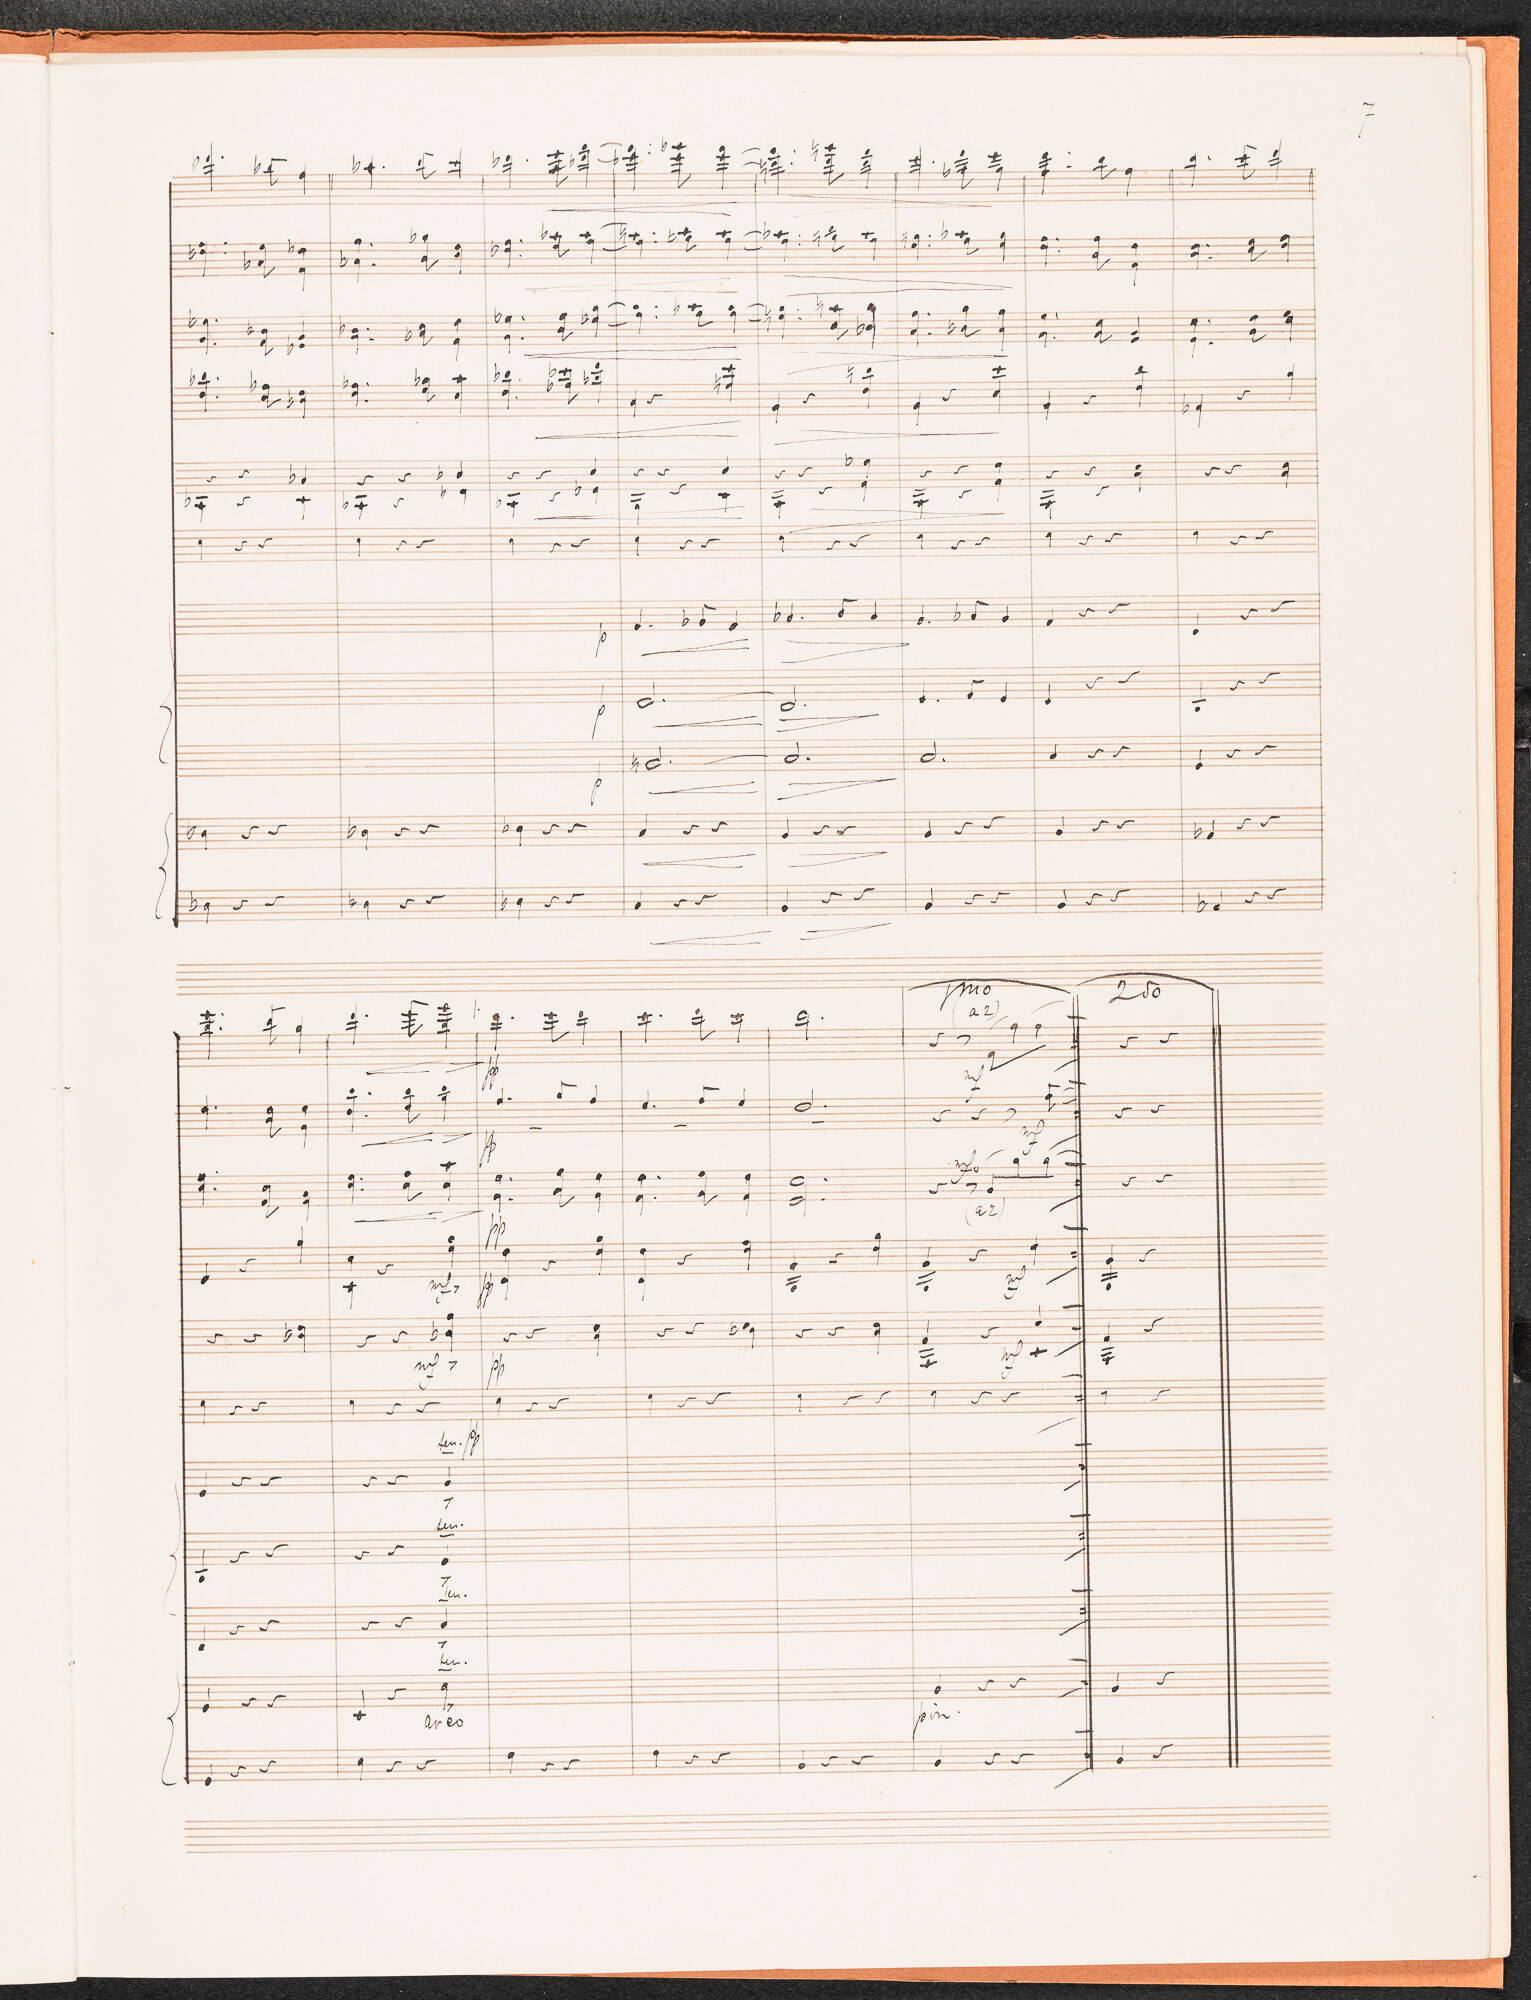 7
p
p
p
1mo
2do
(a2)
pp
mf
pp
mf
mf
(a2)
pp
mf
pp
mf
mf
pp
mf
ten. pp
ten.
ten.
ten.
arco
pizz.